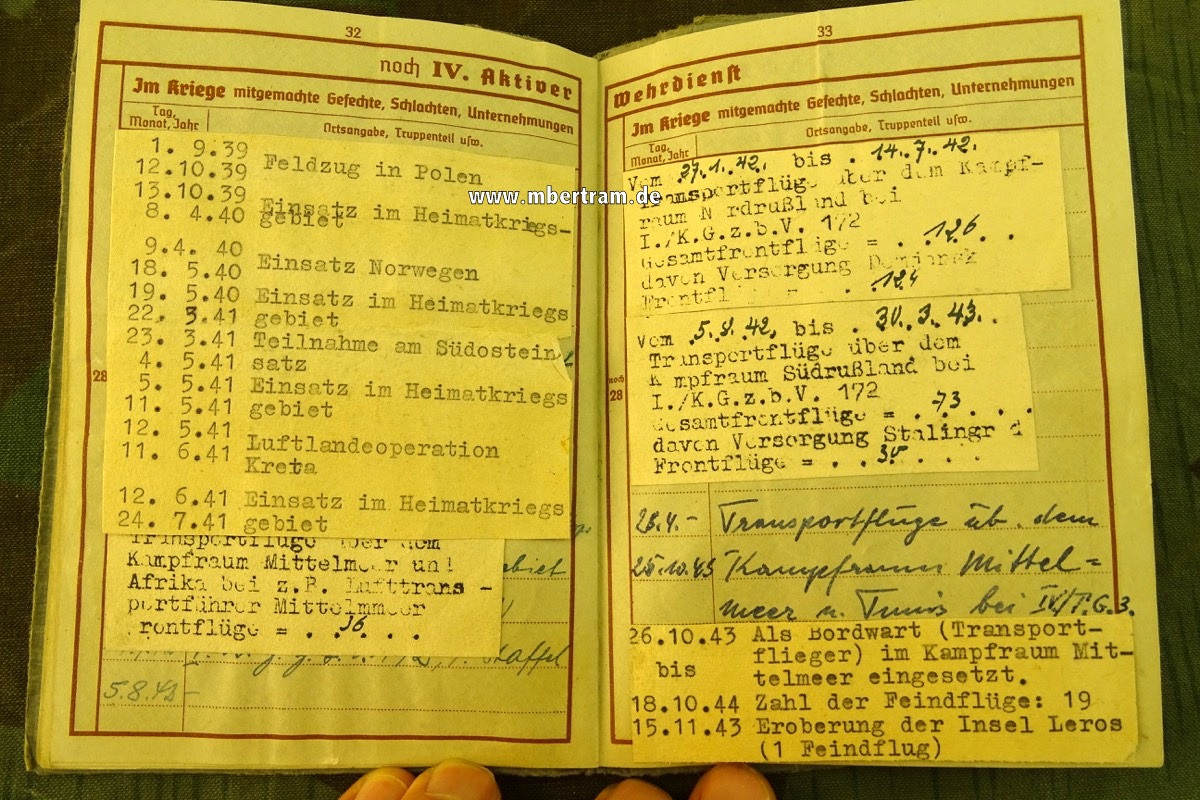 32
noch IV. Aktiver
Im Kriege mitgemachte Gefechte, Schlachten, Unternehmungen
Tag, Monat, Jahr
Ortsangabe, Truppenteil usw.
1. 9.39
12.10.39 Feldzug in Polen
13.10.39
8. 4.40 Einsatz im Heimatkriegs-
gebiet
9.4. 40
18. 5.40 Einsatz Norwegen
19. 5.40 Einsatz im Heimatkriegs
22. 3.41 gebiet
23. 3.41 Teilnahme am Südostein
4. 5.41 satz
5. 5.41 Einsatz im Heimatkriegs
11. 5.41 gebiet
12. 5.41 Luftlandeoperation
11. 6.41 Kreta
12. 6.41 Einsatz im Heimatkriegs
24. 7.41 gebiet
28
Transportflüge über dem
Kampfraum Mittelmeer un
Afrika bei z.B. Lufttrans-
portführer Mittelmmeer
rontflüge = . 16 . . .
ebiet
Staffel
5.8.42 -
33
Wehrdienst
Im Kriege mitgemachte Gefechte, Schlachten, Unternehmungen
Tag, Monat, Jahr
Ortsangabe, Truppenteil usw.
Vom 27.1.42. bis . 14.7.42.
Transportflüge über dem Kampf-
raum N rdrußland bei
I./K.G.z.b.V. 172
Gesamtfrontflüge = . 126 . .
davon Versorgung Demjansk
Frontfl = . . 124
Vom 5.8.42. bis . 30.3.43. .
Transportflüge über dem
K mpfraum Südrußland bei
I./K.G.z.b.V. 172
Gesamtfrontflüge = . 73 . . . .
davon Versorgung Stalingr d
Frontflüge = . . . . . .
noch 28
28.4.- Transportflüge üb. dem
25.10.43 Kampfraum Mittel=
meer u. Tunis bei IV/T.G.3.
26.10.43 Als Bordwart (Transport-
flieger) im Kampfraum Mit-
bis telmeer eingesetzt.
18.10.44 Zahl der Feindflüge: 19
15.11.43 Eroberung der Insel Leros
(1 Feindflug)
www.mbertram.de